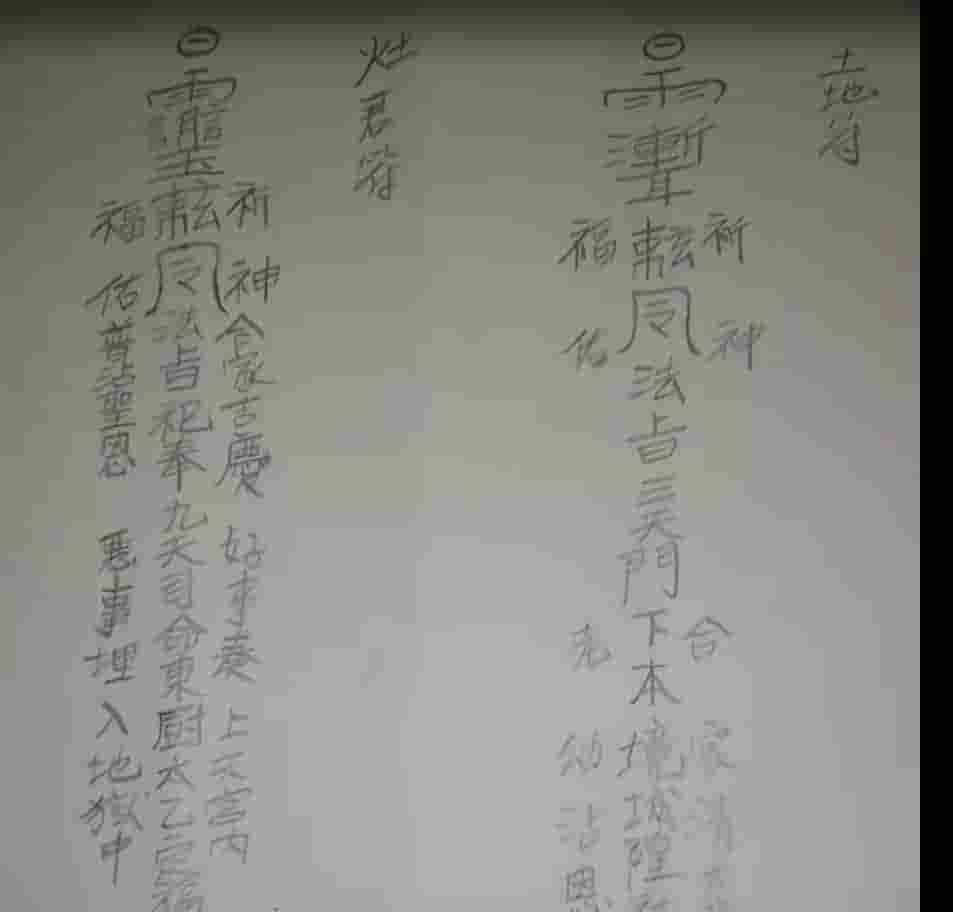 土地符
祈神合家清
令法旨三天門下本境城隍
福佑老幼沾恩
灶君符
祈神合家吉慶 好事奏上天宮內
靈
令法旨祀奉九天司命東廚太乙定福
福佑普沾聖恩 惡事埋入地獄中